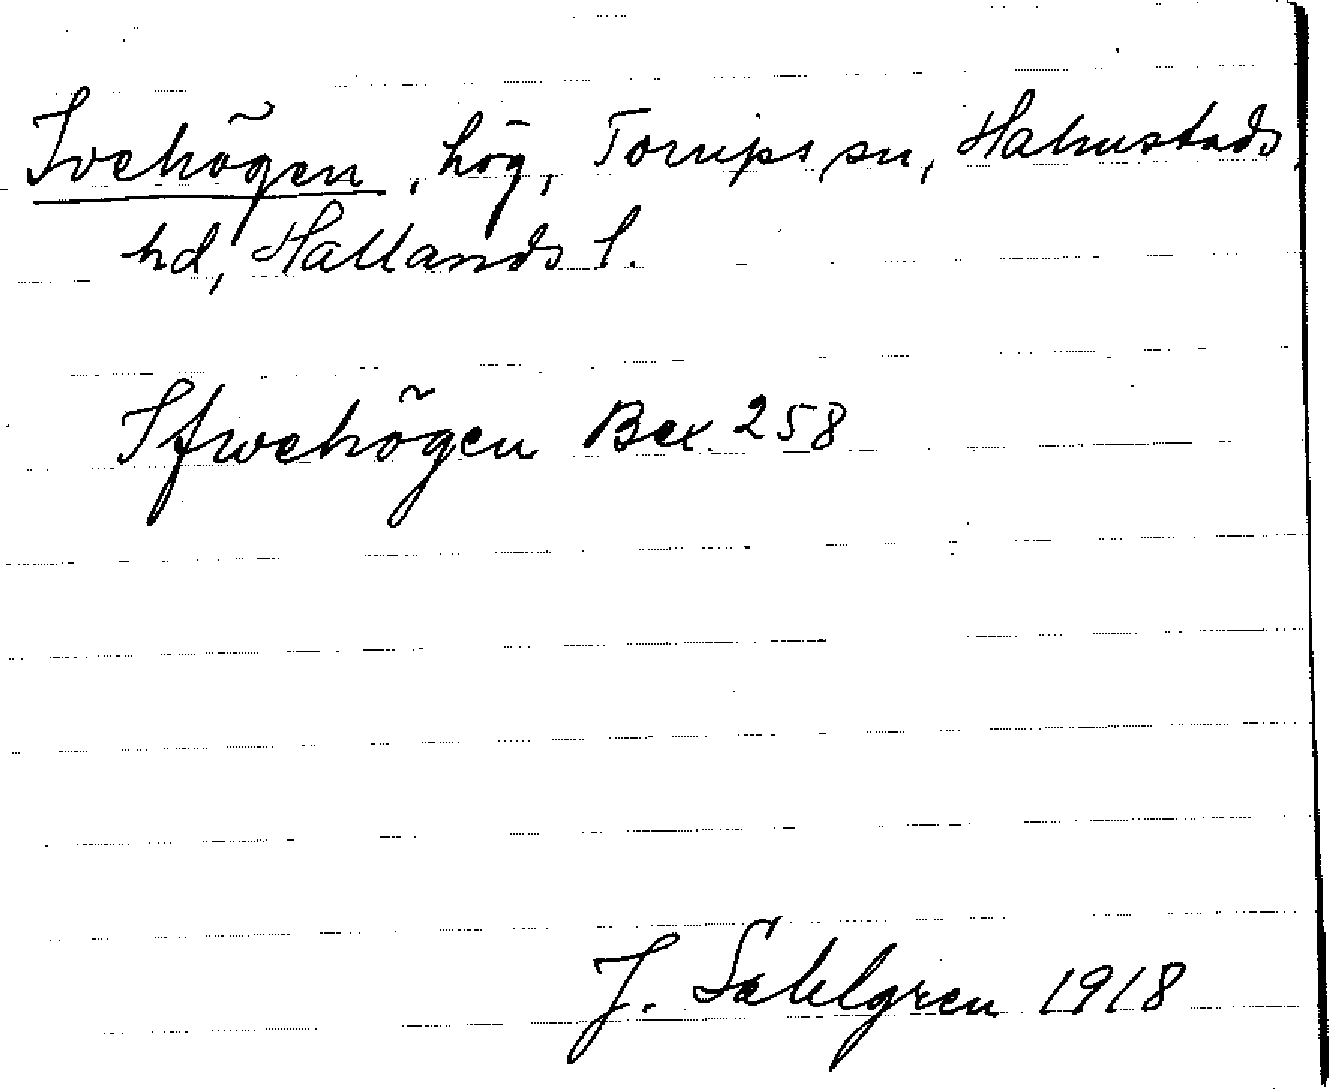 Ivehögen, hög, Torups sn, Halmstads
hd, Hallands l.
Ifwehögen Bex. 258
J. Sahlgren 1918